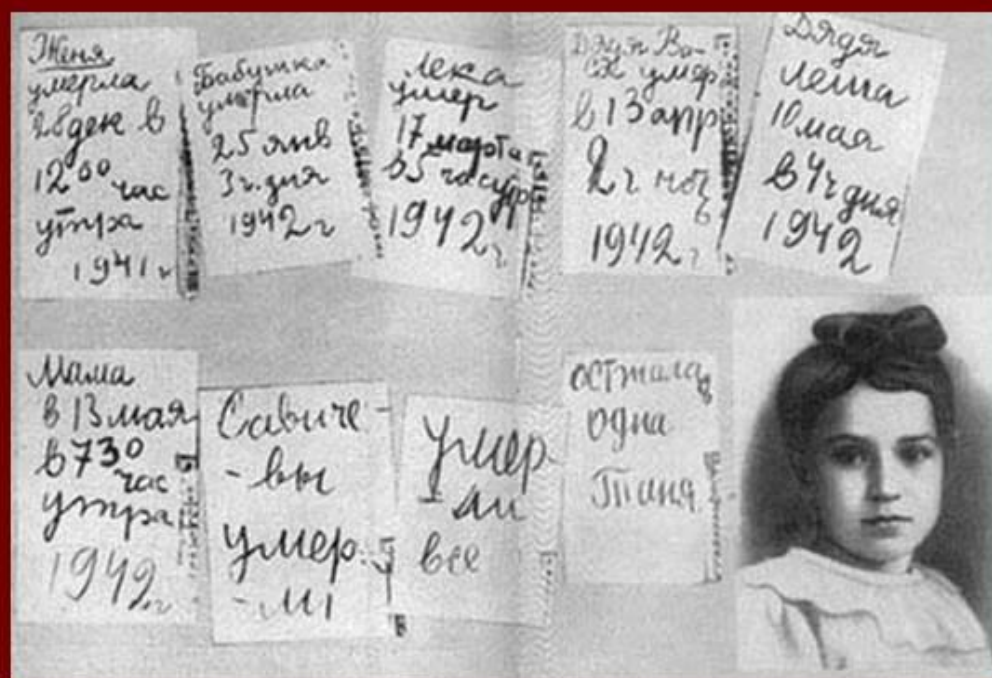 Женя
умерла
28 дек в
12⁰⁰ час
утра
1941 г
Бабушка
умерла
25 янв
3 ч. дня
1942 г
Лека
умер
17 марта
в 5 час утр
1942 г
Дядя Ва-
ся умер
в 13 апр
2 ч ноч
1942 г
Дядя
Леша
10 мая
в 4 ч дня
1942
Мама
в 13 мая
в 7³⁰
час
утра
1942 г
Савиче-
-вы
умер.
-ли
умер
-ли
все
осталась
одна
Таня